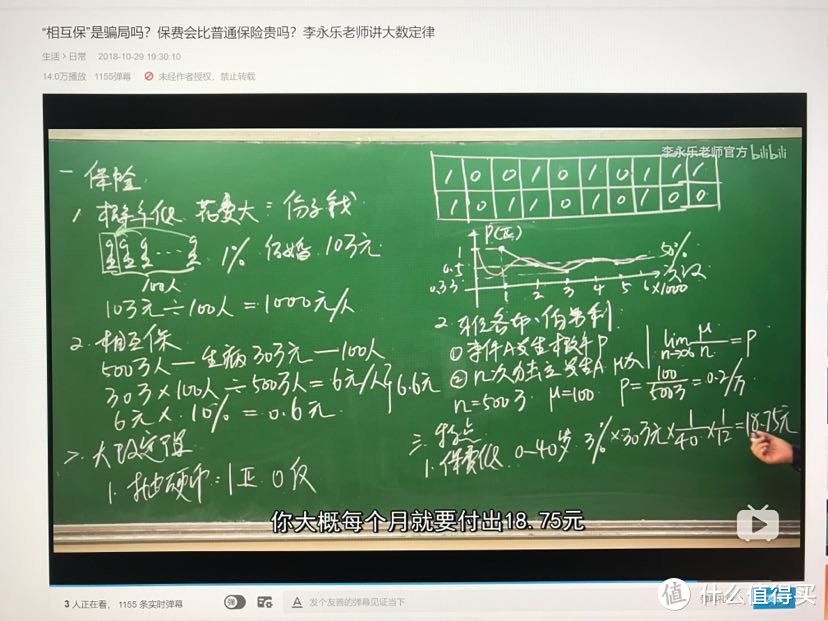 “相互保”是骗局吗？保费会比普通保险贵吗？李永乐老师讲大数定律
生活 > 日常 2018-10-29 19:30:10
14.0万播放 · 1155弹幕 未经作者授权，禁止转载
李永乐老师官方 bilibili
一 保险
1. 概率低 花费大：份子钱
100人
1% 结婚 10万元
10万元÷100人=1000元/人
2. 相互保
500万人—生病30万元—100人
30万×100人÷500万人=6元/人
6元×10%=0.6元
6.6元
二、大数定律
1. 抛硬币：1正 0反
1 0 0 1 0 1 0 1 1 1
1 0 1 1 0 1 0 1 0 0
P(正)
1
0.5
0.33
50%
次数
1 2 3 4 5 6 ×1000
2. 伯努利
①事件A发生概率P
②n次独立 发生A μ次
lim μ/n = P
n→∞
n=500万 μ=100 P=100/500万=0.2/万
三、特点
1. 保费低 0~40岁 3%×30万元×1/40×1/12=18.75元
你大概每个月就要付出18.75元
3 人正在看， 1155 条实时弹幕
弹
A 发个友善的弹幕见证当下
值 什么值得买